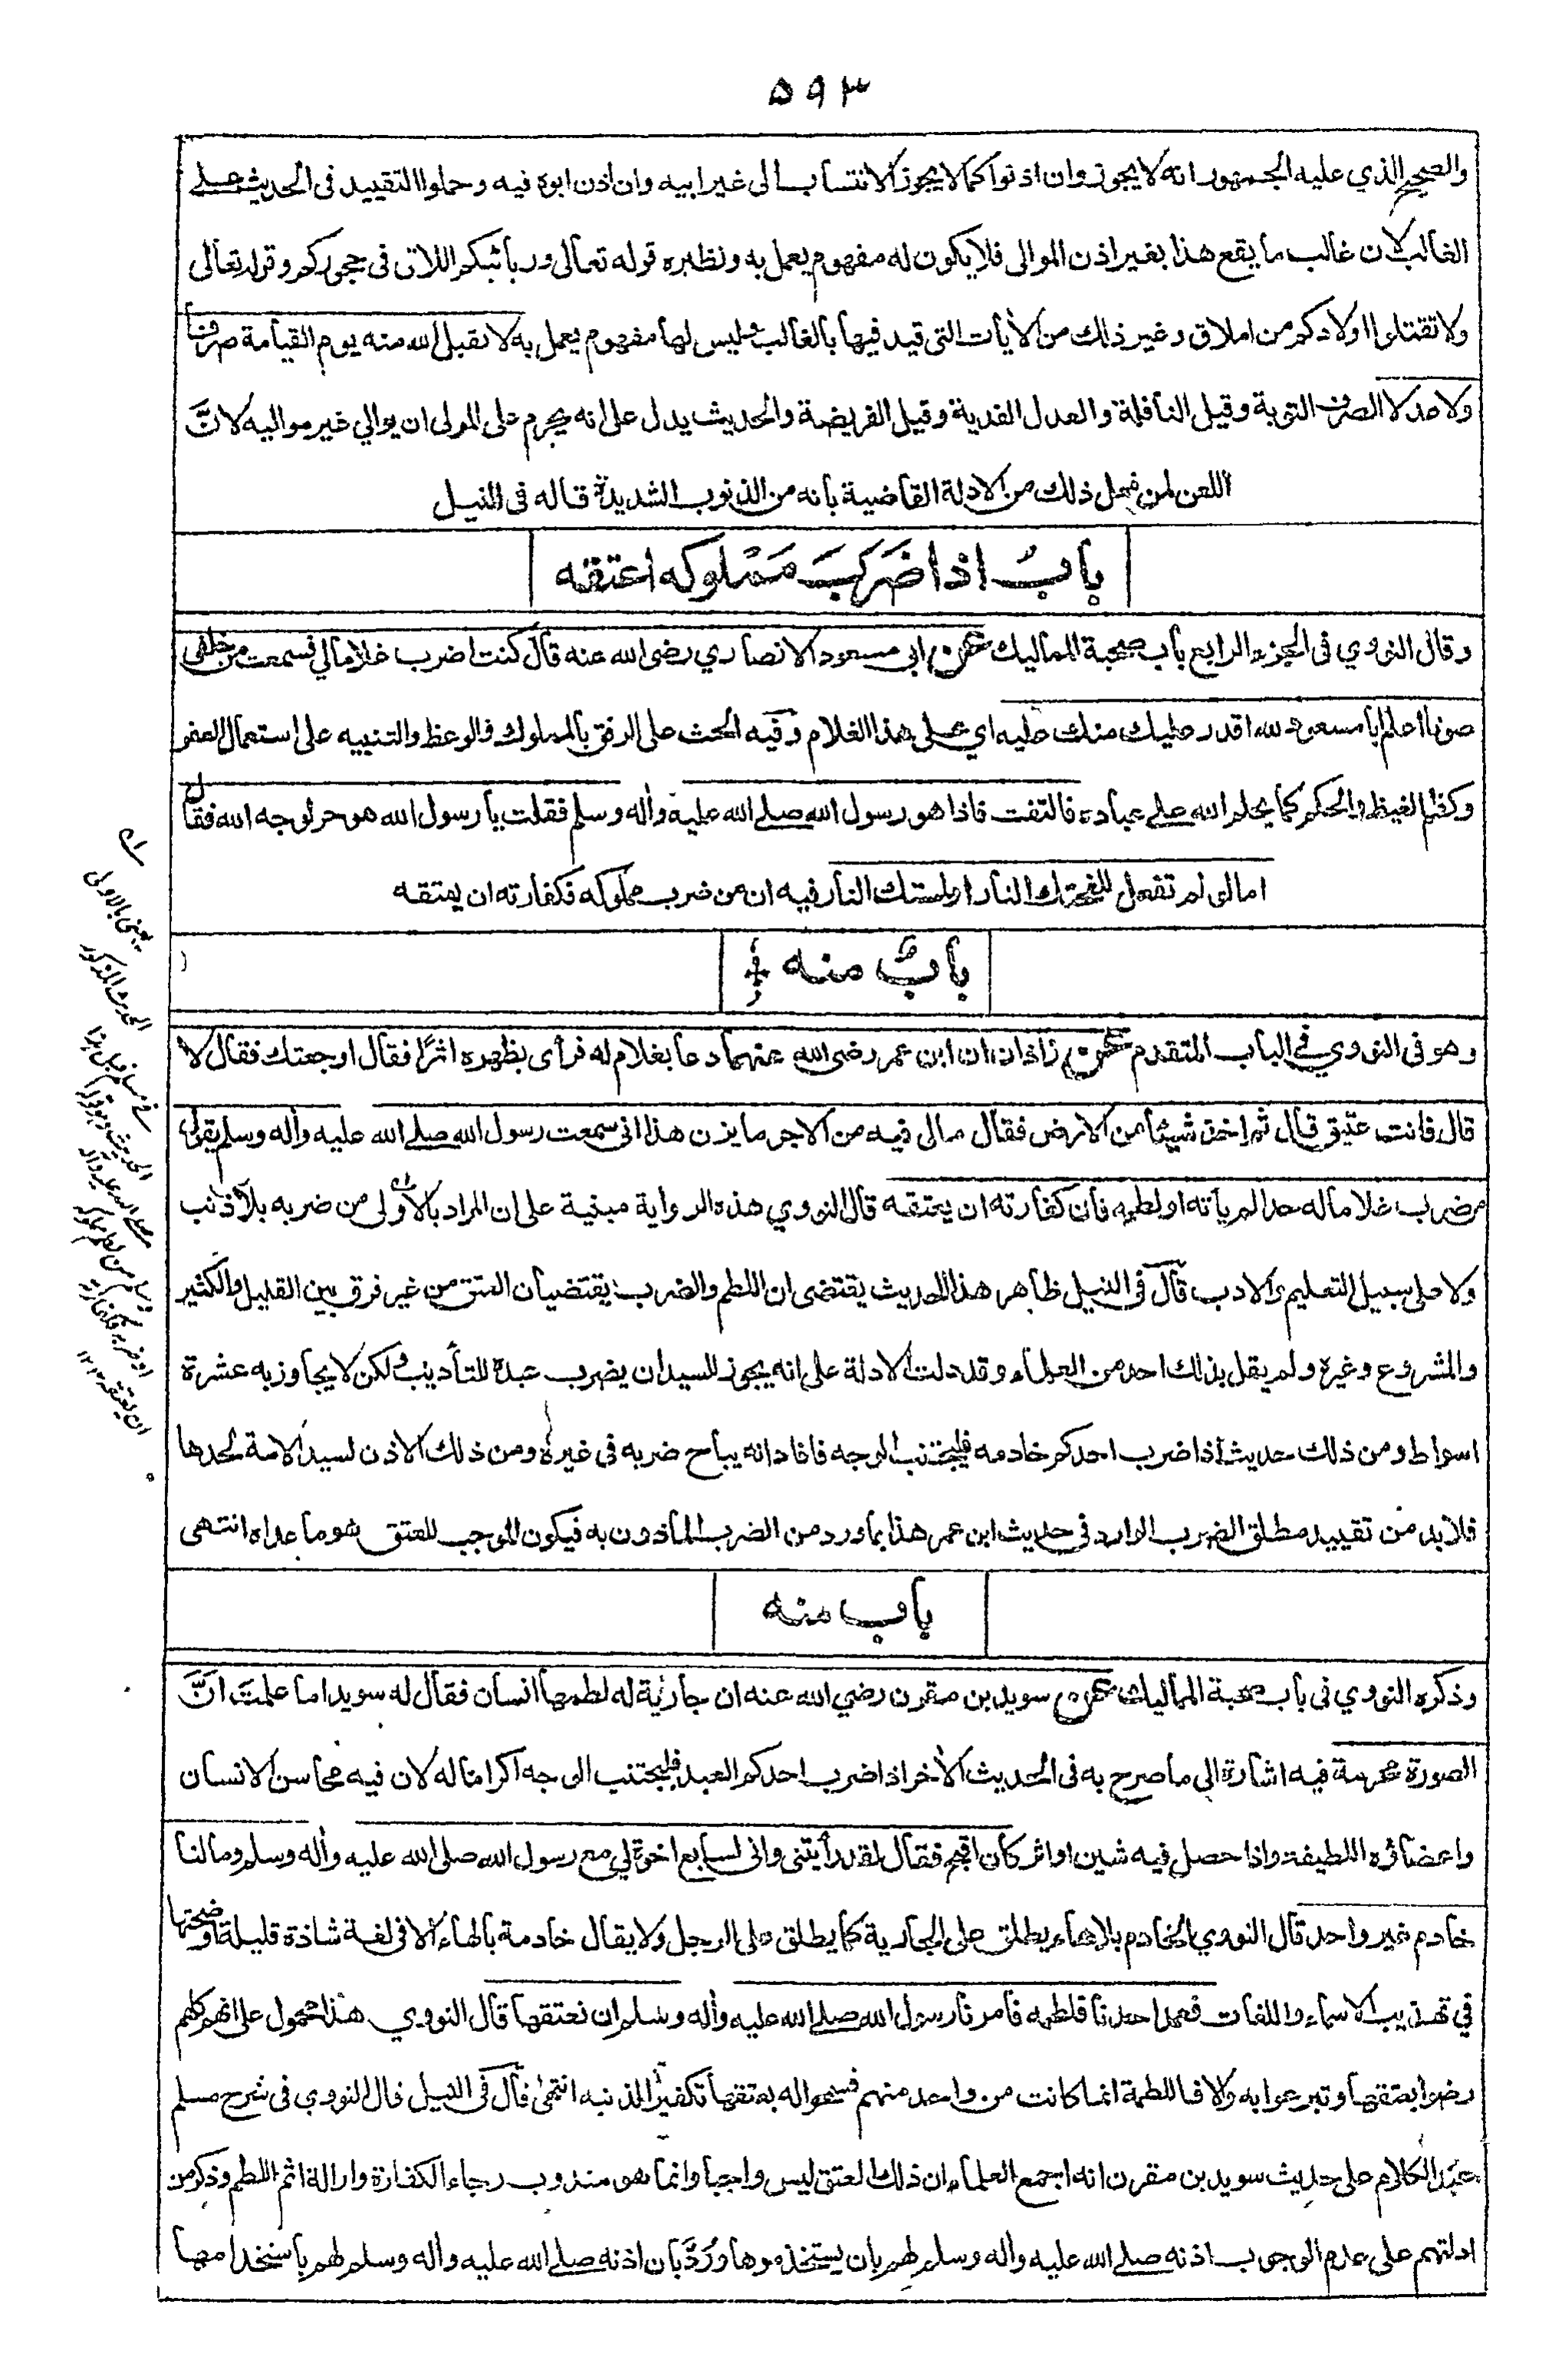 ۵۹۳
والصحيح الذي عليه الجمهور انه لا يجوز وان اذنوا كما لا يجوز الانتساب الى غير ابيه وان اذن ابوه فيه وحملوا التقييد فى الحديث على
الغالب لان غالب ما يقع هذا بغير اذن الموالى فلا يكون له مفهوم يعمل به ونظيره قوله تعالى وربائبكم اللاتى فى حجوركم وقوله تعالى
ولا تقتلوا اولادكم من املاق وغير ذلك من الأيات التى قيد فيها بالغالب وليس لها مفهوم يعمل به لا يقبل الله منه يوم القيامة صرفا
ولا عدلا الصرف التوبة وقيل النافلة والعدل الفدية وقيل الفريضة والحديث يدل على انه يحرم على المولى ان يوالي غير مواليه لانَّ
اللعن لمن فعل ذلك من الادلة القاضية بانه من الذنوب الشديدة قاله فى النيل
بابُ اذا ضَرَبَ مَمْلوكه اعتقه
وقال النووي فى الجزء الرابع باب صحبة المماليك عن ابى مسعود الانصاري رضى الله عنه قال كنت اضرب غلاما لي فسمعت من خلفى
صوتا اعلم ابا مسعود لله اقدر عليك منك عليه اي على هذا الغلام وفيه الحث على الرفق بالمملوك والوعظ والتنبيه على استعمال العفو
وكظم الغيظ والحكم كما يحلم الله على عباده فالتفت فاذا هو رسول الله صلے الله عليه وأله وسلم فقلت يا رسول الله هو حر لوجه الله فقال
اما لو لم تفعل للفحتك النار او لمستك النار فيه ان من ضرب مملوكه فكفارته ان يعتقه
بابٌ منه
وهو فى النووي في الباب المتقدم عن زاذان ان ابن عمر رضى الله عنهما دعا بغلام له فرأى بظهره اثرًا فقال اوجعتك فقال لا
قال فانت عتيق قال ثم اخذ شيئا من الارض فقال مالى فيه من الاجر ما يزن هذا انى سمعت رسول الله صلے الله عليه وأله وسلم يقول
من ضرب غلاما له حدا لم يأته او لطمه فان كفارته ان يعتقه قال النووي هذه الرواية مبنية على ان المراد بالاولى من ضربه بلا ذنب
ولا على سبيل التعليم والادب قال فى النيل ظاهر هذا الحديث يقتضى ان اللطم والضرب يقتضيان العتق من غير فرق بين القليل والكثير
والمشروع وغيره ولم يقل بذلك احد من العلماء وقد دلت الادلة على انه يجوز للسيد ان يضرب عبده للتأديب ولكن لا يجاوز به عشرة
اسواط ومن ذلك حديث اذا ضرب احدكم خادمه فليجتنب الوجه فافاد انه يباح ضربه فى غيره ومن ذلك الاذن لسيد الامة لحدها
فلا بد من تقييد مطلق الضرب الوارد فى حديث ابن عمر هذا بما ورد من الضرب المأذون به فيكون الموجب للعتق هو ما عداه انتهى
باب منه
وذكره النووي فى باب صحبة المماليك عن سويد بن مقرن رضي الله عنه ان جارية له لطمها انسان فقال له سويد اما علمت انَّ
الصورة محرمة فيه اشارة الى ما صرح به فى الحديث الأخر اذا ضرب احدكم العبد فليجتنب الوجه اكراما له لان فيه محاسن الانسان
واعضائه اللطيفة واذا حصل فيه شين او اثر كان اقبح فقال لقد رأيتنى وانى لسابع اخوة لي مع رسول الله صلى الله عليه وأله وسلم وما لنا
خادم غير واحد قال النووي الخادم بلا هاء يطلق على الجارية كما يطلق على الرجل ولا يقال خادمة بالهاء الا فى لغة شاذة قليلة اوضحتها
في تهذيب الاسماء واللغات فعمد احدنا فلطمه فامرنا رسول الله صلے الله عليه وأله وسلم ان نعتقها قال النووي هذا محمول على انهم كلهم
رضوا بعتقها وتبرعوا به والا فاللطمة انما كانت من واحد منهم فسمحوا له بعتقها تكفيرًا لذنبه انتهى قال فى النيل قال النووي فى شرح مسلم
عند الكلام على حديث سويد بن مقرن انه اجمع العلماء ان ذلك العتق ليس واجبا وانما هو مندوب رجاء الكفارة وازالة اثم اللطم وذكر من
ادلتهم على عدم الوجوب اذنه صلے الله عليه وأله وسلم لهم بان يستخدموها ورُدَّ بان اذنه صلے الله عليه وأله وسلم لهم باستخدامها
يعنى بالاولى
الحديث المذكور
فى مسلم قبل هذا
الحديث وهو قوله
صلى الله عليه وآله
وسلم من لطم مملوكه
او ضربه فكفارته
ان يعتقه ۱۲